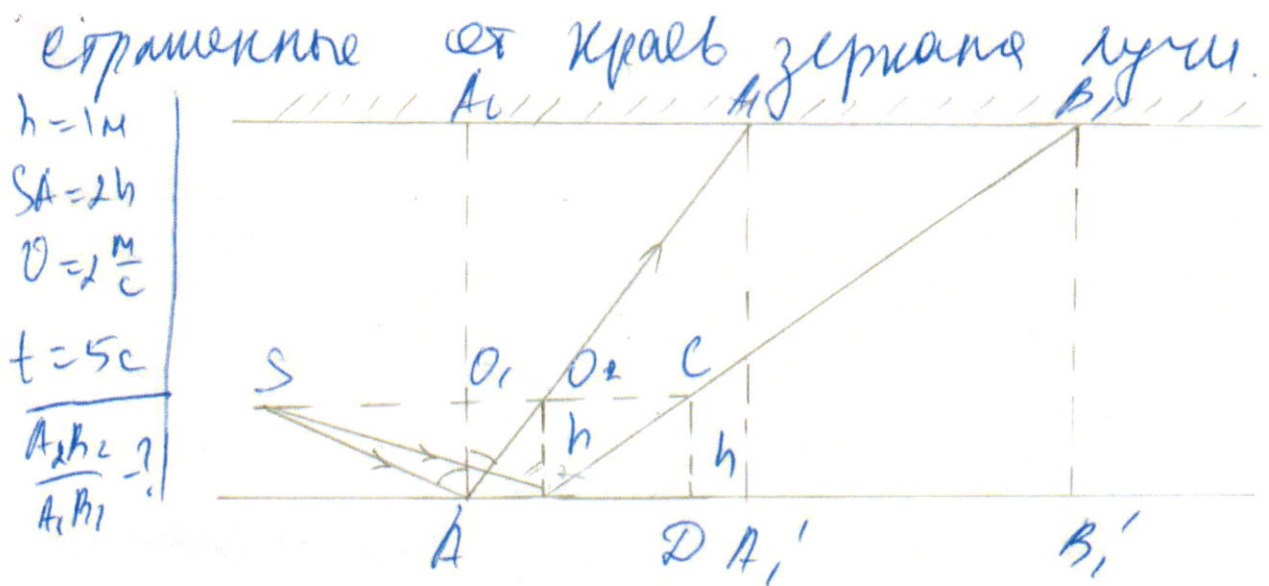 отраженные от краев зеркала лучи.
h = 1м
SA = 2h
υ = 2 м/с
t = 5с
A₂B₂/A₁B₁ - ?
A₀ A₁ B₁
S O₁ O₂ C
h h
A D A₁' B₁'